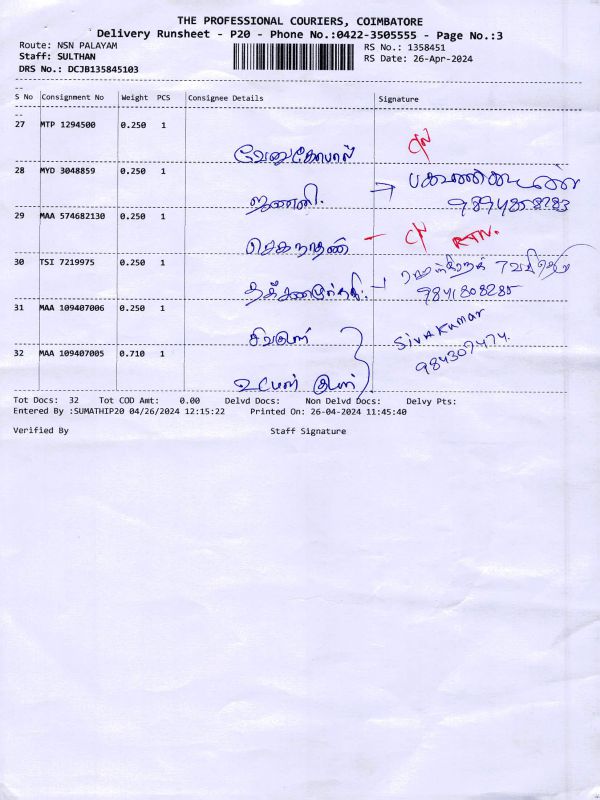 THE PROFESSIONAL COURIERS, COIMBATORE
Delivery Runsheet - P20 - Phone No.:0422-3505555 - Page No.:3
Route: NSN PALAYAM RS No.: 1358451
Staff: SULTHAN RS Date: 26-Apr-2024
DRS No.: DCJB135845103
S No Consignment No Weight PCS Consignee Details Signature
27 MTP 1294500 0.250 1
வேணுகோபால்
28 MYD 3048859 0.250 1
ஜனனி.
29 MAA 574682130 0.250 1
RTN.
30 TSI 7219975 0.250 1
31 MAA 109407006 0.250 1
சிவகுமார் Sivakumar
32 MAA 109407005 0.710 1
Tot Docs: 32 Tot COD Amt: 0.00 Delvd Docs: Non Delvd Docs: Delvy Pts:
Entered By :SUMATHIP20 04/26/2024 12:15:22 Printed On: 26-04-2024 11:45:40
Verified By Staff Signature